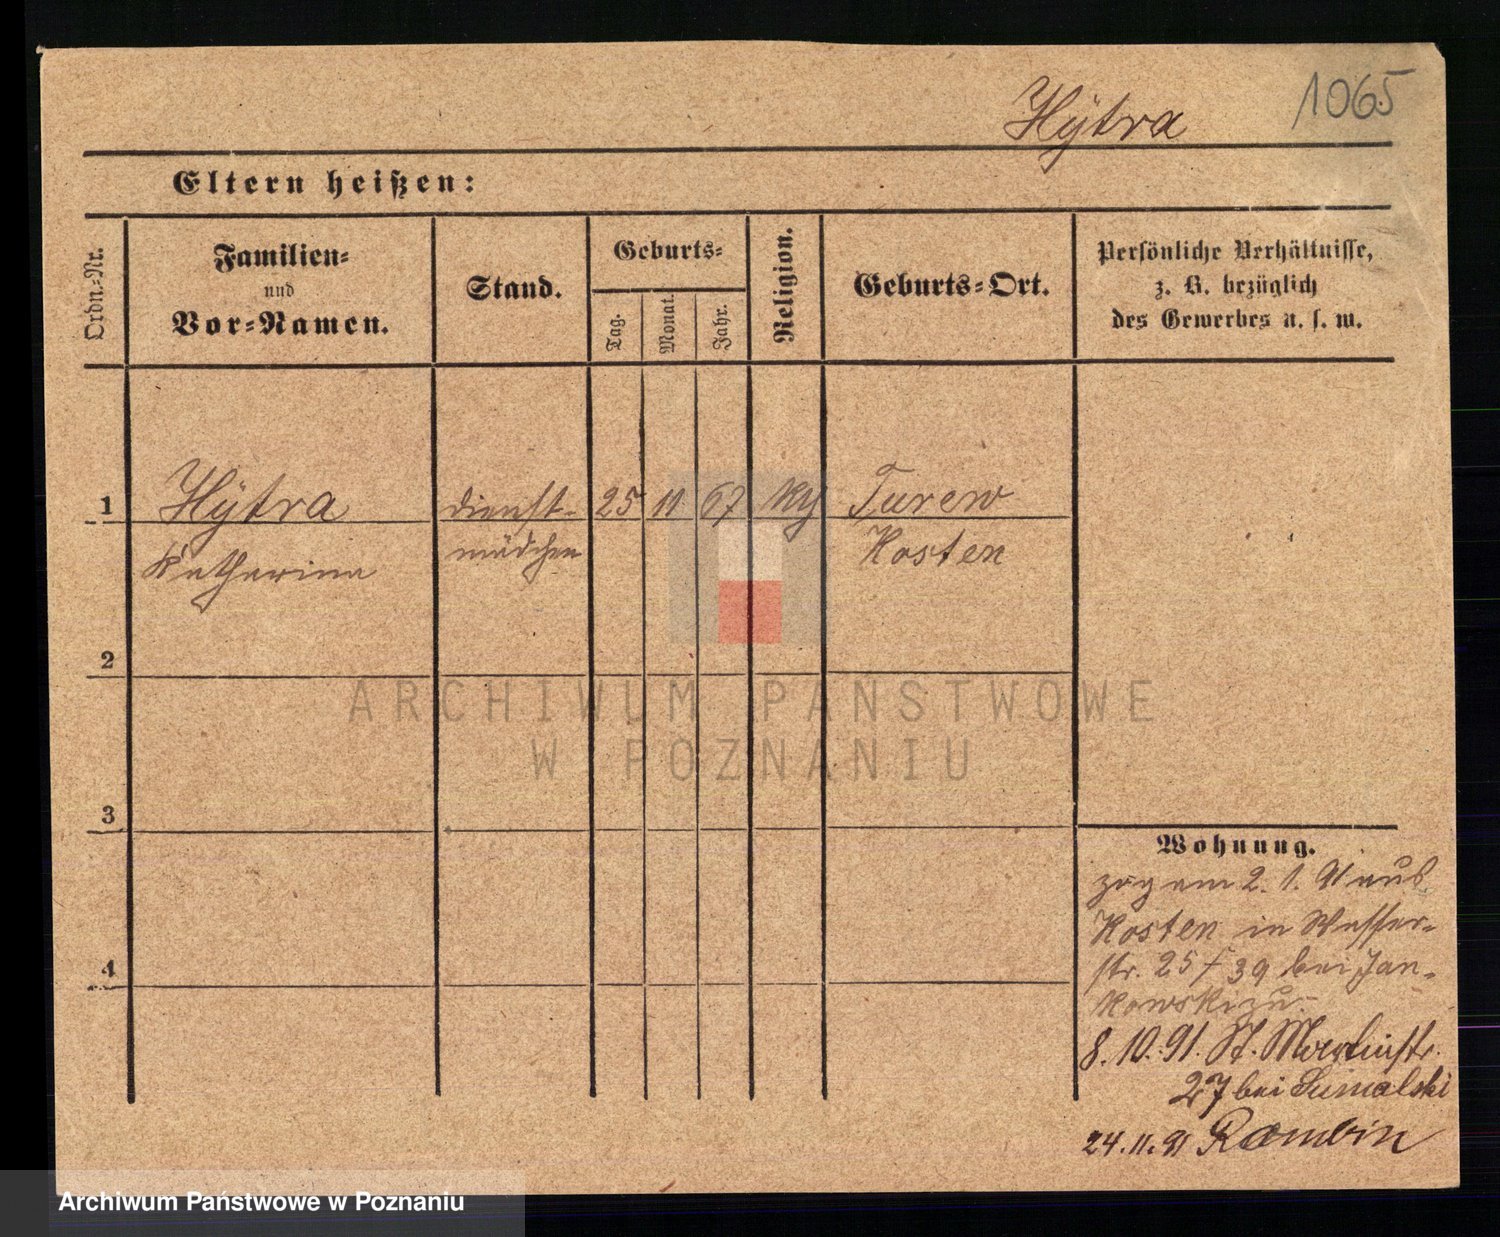 1065
Hÿtra
Eltern heißen:
Ordn.-Nr.
Familien-
und
Vor-Namen.
Stand.
Geburts-
Tag.
Monat.
Jahr.
Religion.
Geburts-Ort.
Persönliche Verhältnisse,
z. B. bezüglich
des Gewerbes u. s. w.
1 Hÿtra dienst- 25 11 67 Turew
Katharina mädchen Kosten
2
3
4
Wohnung.
zog am 2. 1. 91 aus
Kosten in Wasser-
str. 25 / 39 bei Jan-
kowski zu.
8.10.91. St. Martinstr.
27 bei Sumalski
24.11.91
ARCHIWUM PAŃSTWOWE
W POZNANIU
Archiwum Państwowe w Poznaniu